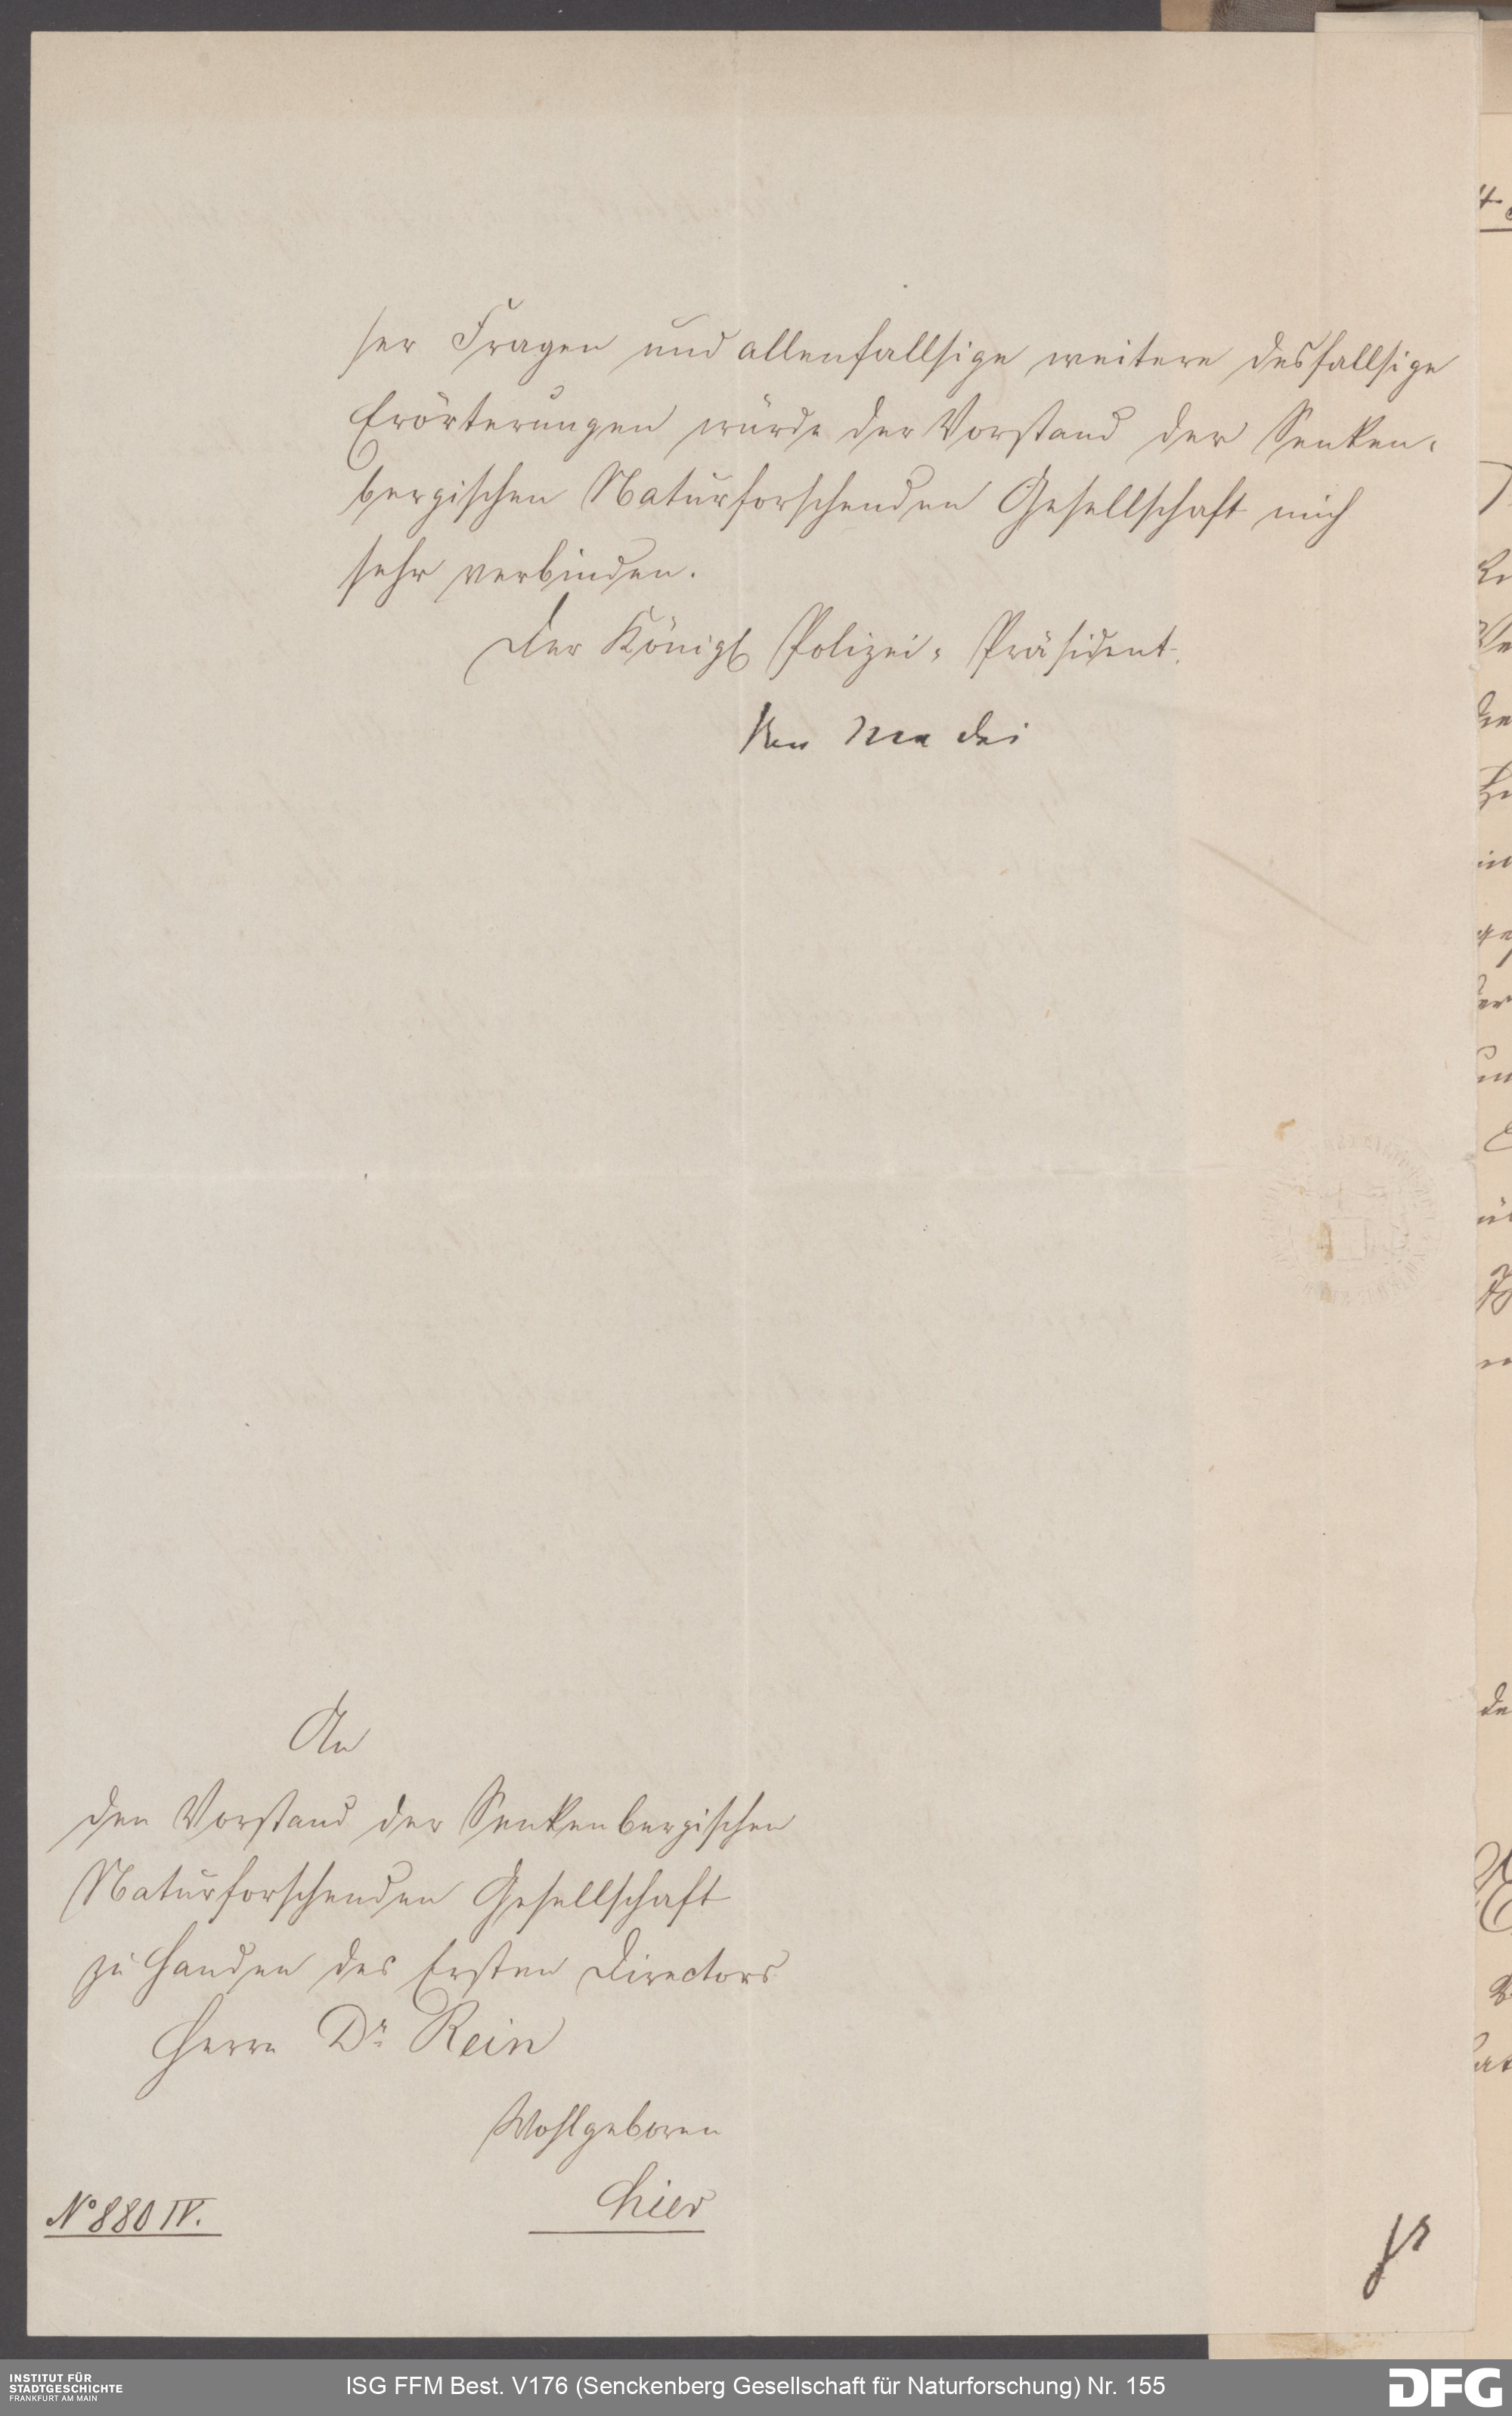 ser Fragen und allenfallsige weitere desfallsige
Erörterungen würde der Vorstand der Senken-
bergischen Naturforschenden Gesellschaft mich
sehr verbinden.
Der Königl Polizei-Präsident.
von Madai
An
den Vorstand der Senkenbergischen
Naturforschenden Gesellschaft
zu Handen des Ersten Directors
Herrn Dr. Rein
Wohlgeboren
hier
No 880 IV.
INSTITUT FÜR
STADTGESCHICHTE
FRANKFURT AM MAIN
ISG FFM Best. V176 (Senckenberg Gesellschaft für Naturforschung) Nr. 155
DFG